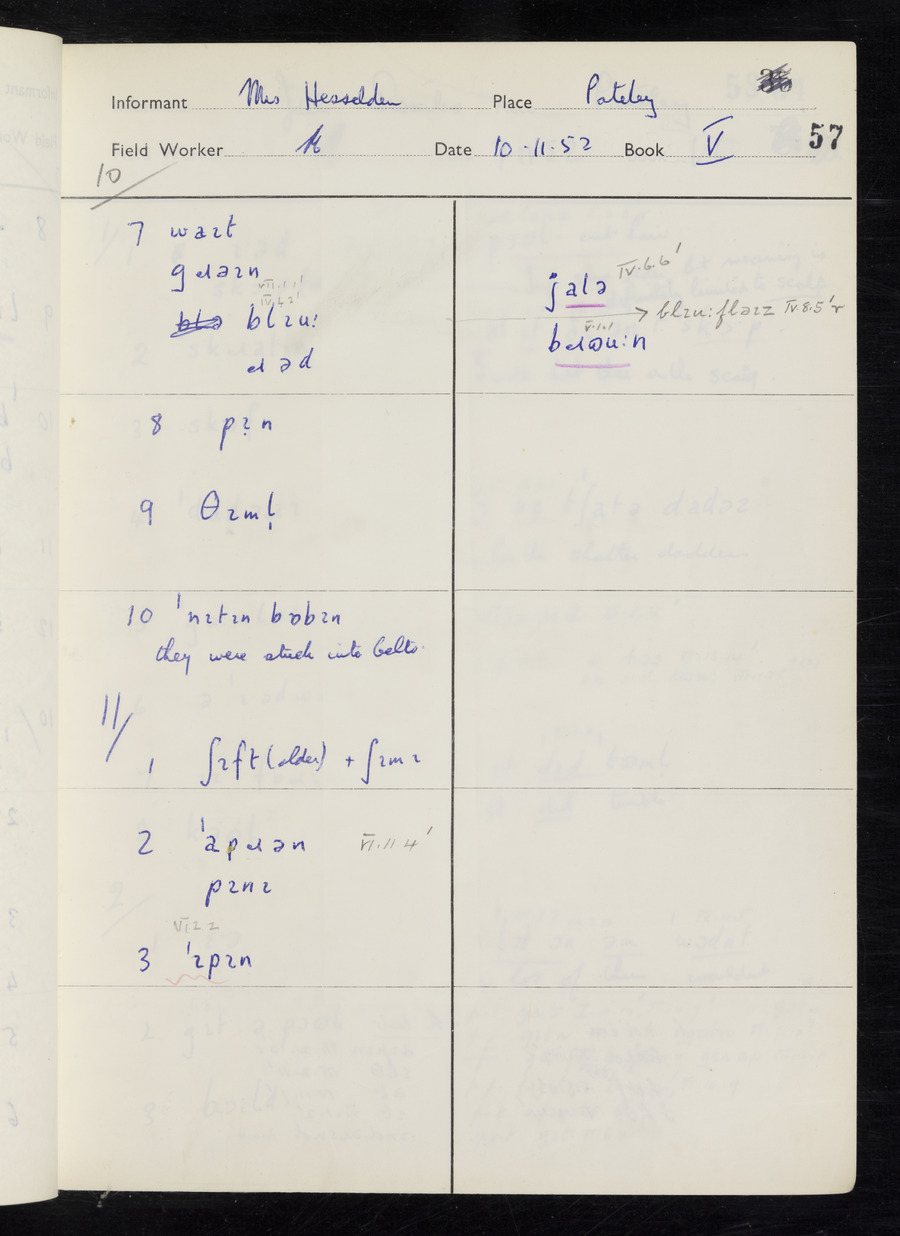 Informant Mrs Hesselden Place Pateley
Field Worker Date 10-11-52 Book V 57
10
7 waɪt
gɹəɪn
VII.1.1'
IV.4.2'
blɪu:
ɹəd
jalə IV.6.6'
→ blɪu:fləɪz IV.8.5'r
V.1.1'
bɹəu:n
8 pɪn
9 θɪml̩
10 ˈnɪtɪn bɒbɪn
they were stuck into belts.
11/
1 ʃɪft (older) + ʃɪmɪ
2 ˈapɹən VI.11.4'
pɪnɪ
VI.2.2
3 ˈɪpɪn